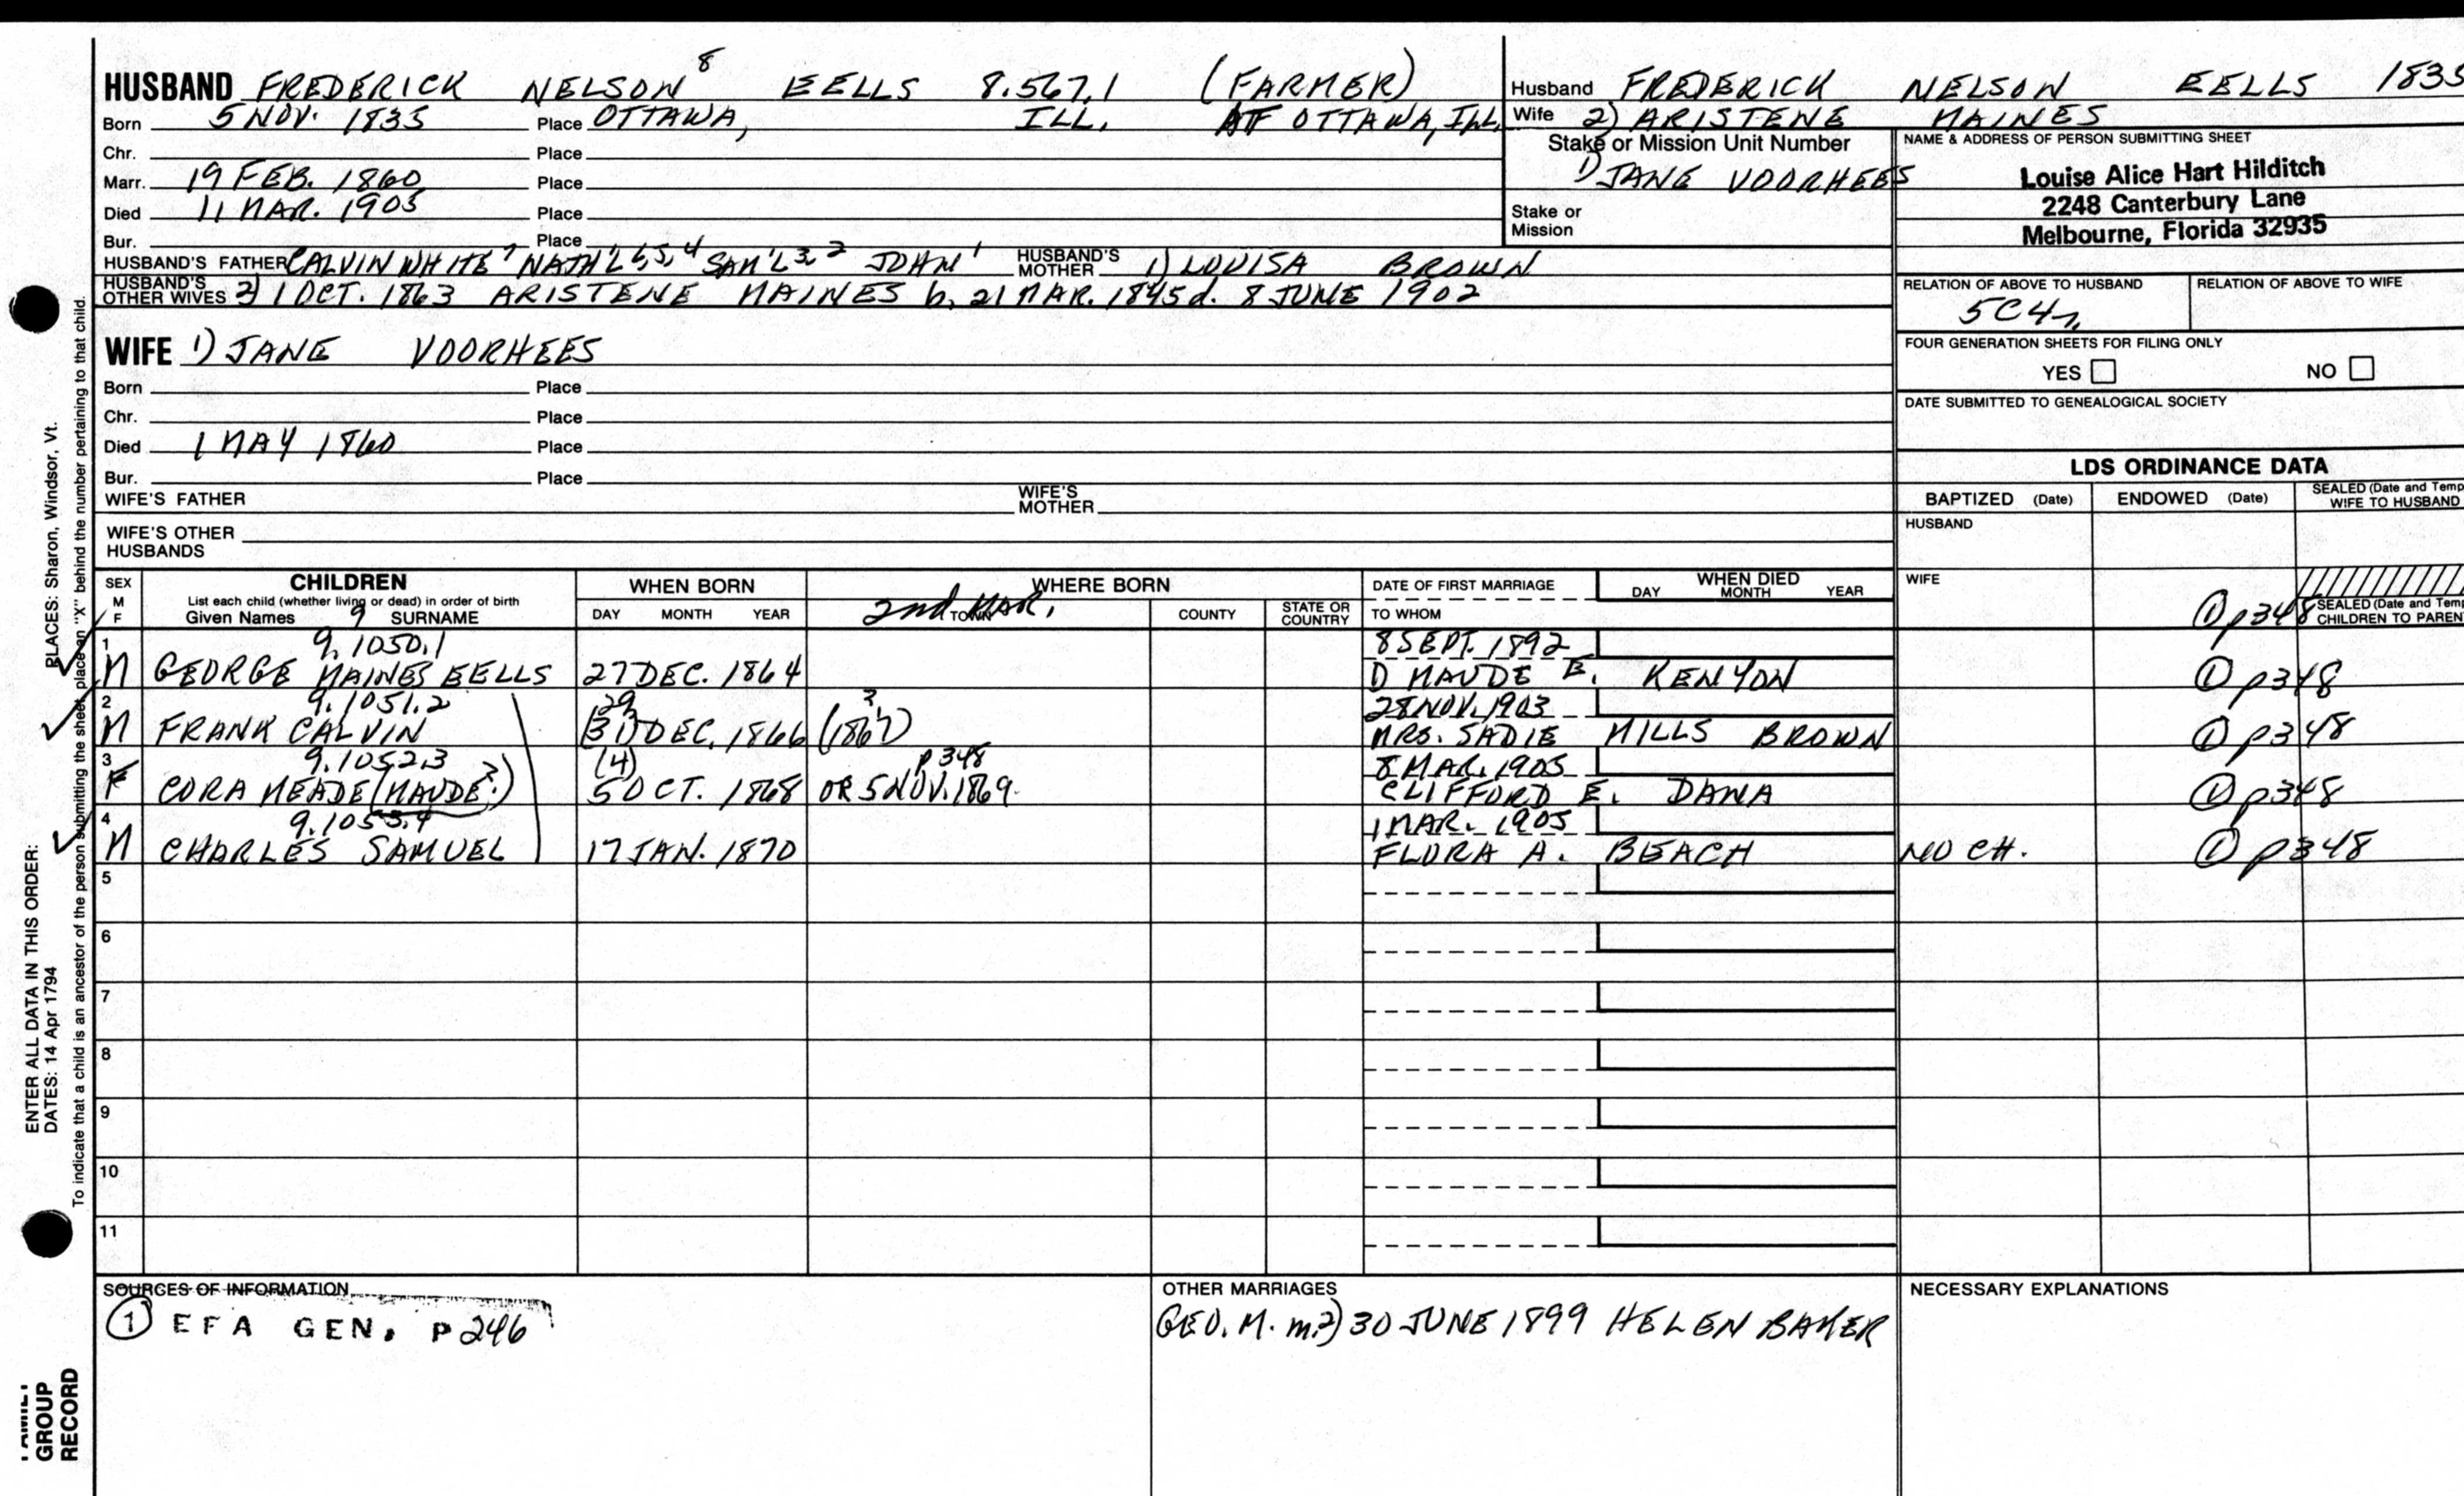 HUSBAND FREDERICK NELSON 8 EELLS 8.567.1 (FARMER)
Born 5 NOV. 1835 Place OTTAWA, ILL. OTTAWA, ILL.
Chr. Place
Marr. 19 FEB. 1860 Place
Died 11 MAR. 1903 Place
Bur. Place
HUSBAND'S FATHER CALVIN WHITE 7 NATH'L 6,5,4 SAM'L 3,2 JOHN 1 HUSBAND'S MOTHER 1) LOUISA BROWN
HUSBAND'S OTHER WIVES 2) 1 OCT. 1863 ARISTENE MAINES b. 21 MAR. 1845 d. 8 JUNE 1902
WIFE 1) JANE VOORHEES
Born Place
Chr. Place
Died 1 MAY 1860 Place
Bur. Place
WIFE'S FATHER WIFE'S MOTHER
WIFE'S OTHER HUSBANDS
Husband FREDERICK NELSON EELLS 1835
Wife 2) ARISTENE MAINES
Stake or Mission Unit Number
1) JANE VOORHEES
Stake or
Mission
NAME & ADDRESS OF PERSON SUBMITTING SHEET
Louise Alice Hart Hilditch
2248 Canterbury Lane
Melbourne, Florida 32935
RELATION OF ABOVE TO HUSBAND RELATION OF ABOVE TO WIFE
5C4r
FOUR GENERATION SHEETS FOR FILING ONLY
YES NO
DATE SUBMITTED TO GENEALOGICAL SOCIETY
LDS ORDINANCE DATA
BAPTIZED (Date) ENDOWED (Date) SEALED (Date and Temp
WIFE TO HUSBAND
HUSBAND
WIFE
1 p348 SEALED (Date and Temp
CHILDREN TO PAREN
SEX M F CHILDREN WHEN BORN WHERE BORN DATE OF FIRST MARRIAGE WHEN DIED
List each child (whether living or dead) in order of birth
Given Names 9 SURNAME DAY MONTH YEAR 2nd MAR. TOWN COUNTY STATE OR COUNTRY TO WHOM DAY MONTH YEAR
1 9.1050.1 8 SEPT. 1892
M GEORGE MAINES EELLS 27 DEC. 1864 1) MAUDE E. KENYON 1 p348
2 9.1051.2 29 3, 28 NOV. 1903
M FRANK CALVIN (31) DEC. 1866 (1867) MRS. SADIE MILLS BROWN 1 p348
3 9.1052.3 (4) p348 8 MAR. 1905
F CORA MEADE (MAUDE?) 5 OCT. 1868 OR 5 NOV. 1869. CLIFFORD E. DANA 1 p348
4 9.1053.4 1 MAR. 1905
M CHARLES SAMUEL 17 JAN. 1870 FLORA A. BEACH NO CH. 1 p348
5
6
7
8
9
10
11
SOURCES OF INFORMATION
1 EFA GEN. P 246
OTHER MARRIAGES
GEO. M. m.2) 30 JUNE 1899 HELEN BAKER
NECESSARY EXPLANATIONS
PLACES: Sharon, Windsor, Vt.
To indicate that a child is an ancestor of the person submitting the sheet, place an "X" behind the number pertaining to that child.
ENTER ALL DATA IN THIS ORDER:
DATES: 14 Apr 1794
FAMILY
GROUP
RECORD